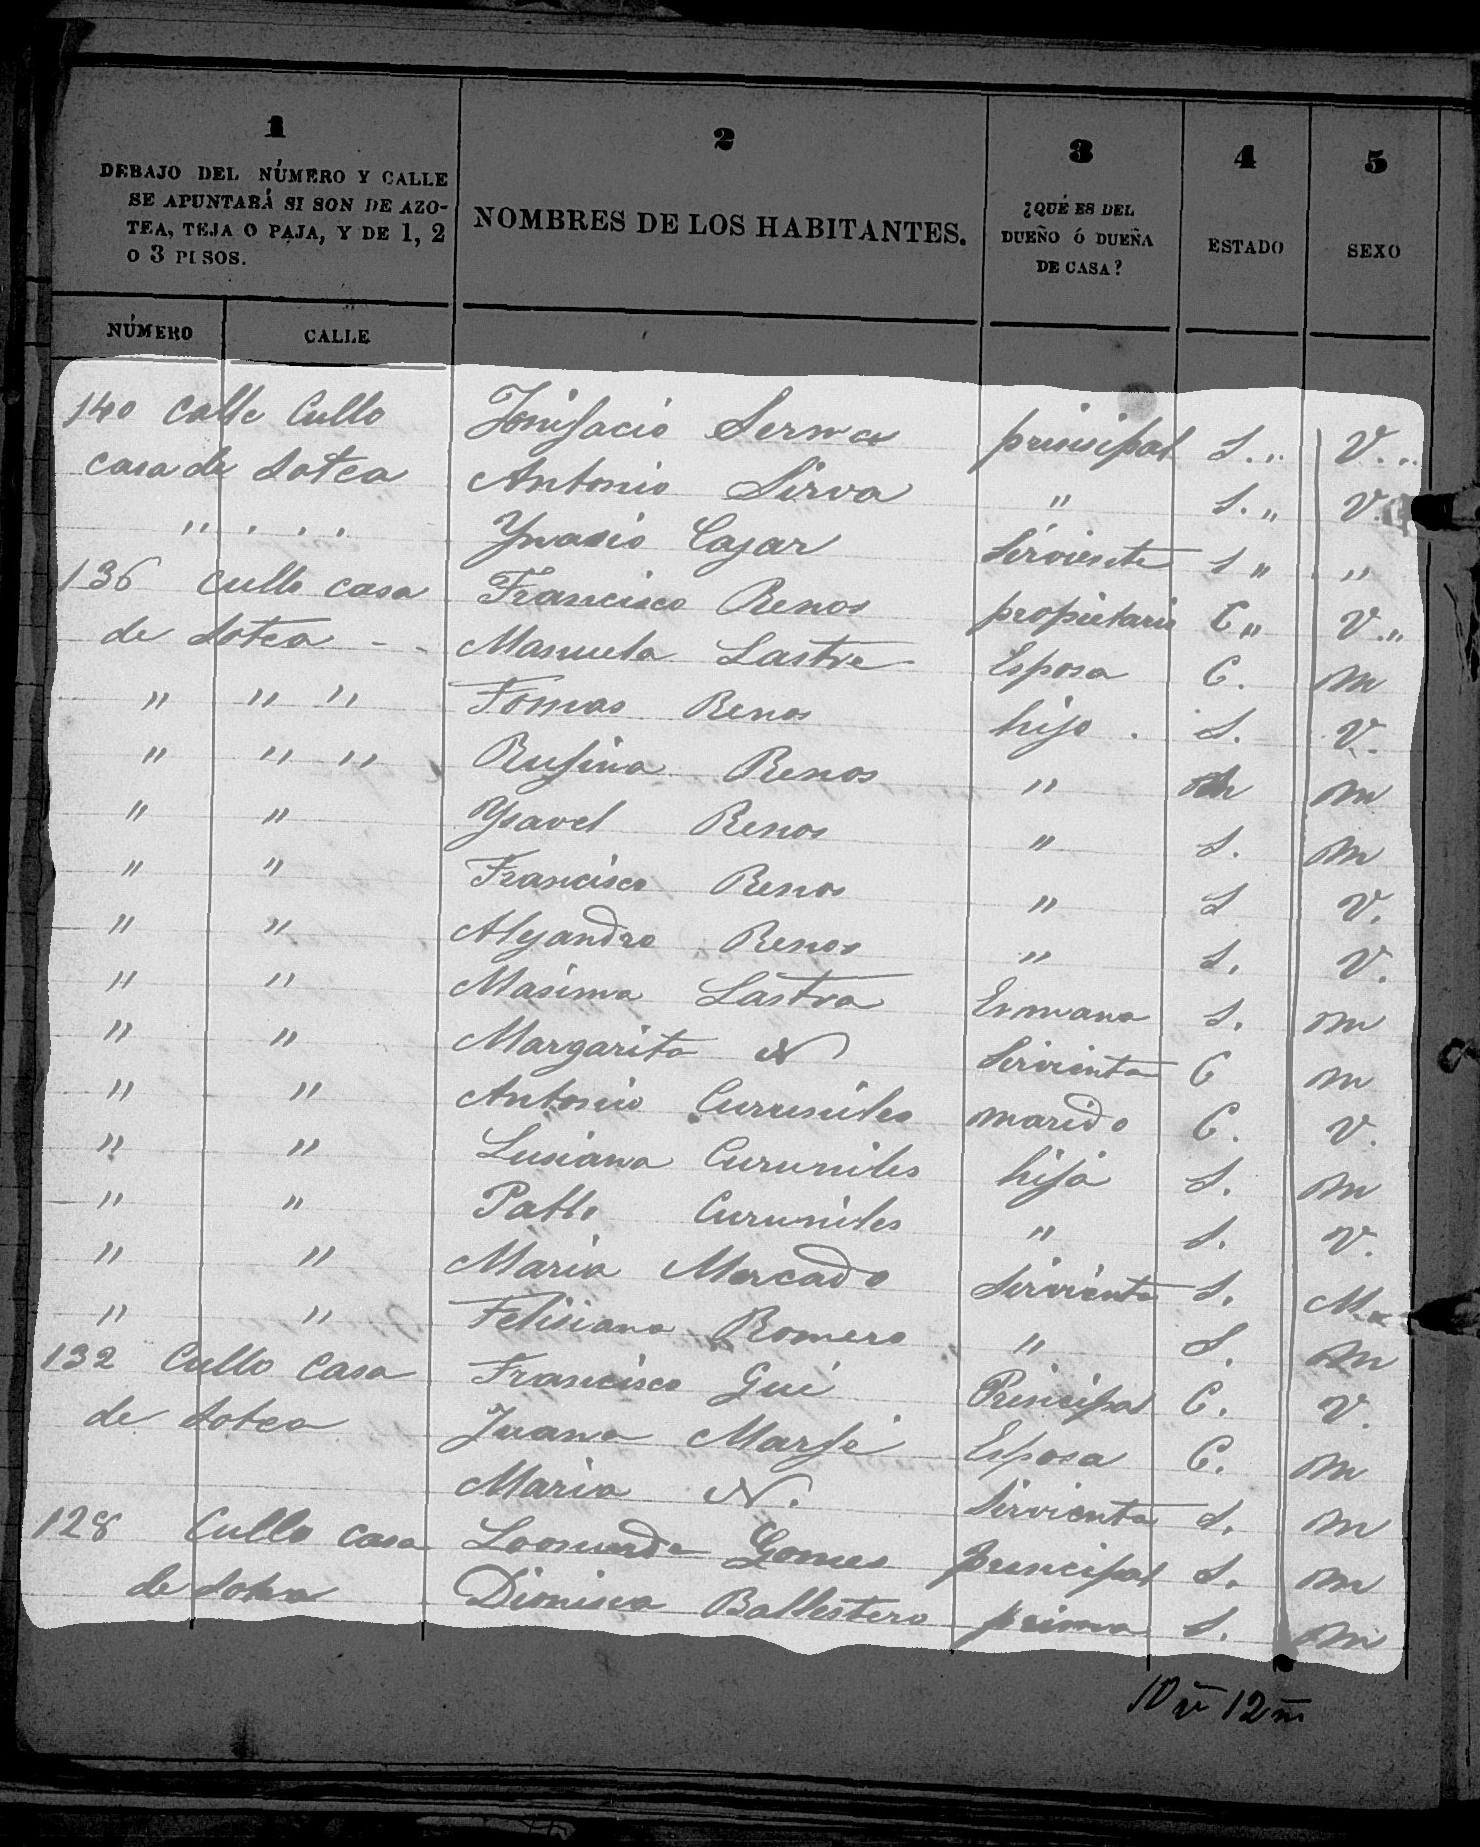 1
DEBAJO DEL NÚMERO Y CALLE
SE APUNTARÁ SI SON DE AZO-
TEA, TEJA O PAJA, Y DE 1, 2
O 3 PISOS.
2
NOMBRES DE LOS HABITANTES.
3
¿QUÉ ES DEL
DUEÑO Ó DUEÑA
DE CASA?
4
ESTADO
5
SEXO
NÚMERO CALLE
140 Calle Cullo Bonifacio Serna principal S. „ V. „
casa de Sotea Antonio Sirva " S. „ V.
" . . . Ynasio Cajar Sirviente S „ "
136 Cullo casa Francisco Renos propietario C „ V. „
de Sotea - - Manuela Lastre Esposa C. m
" " " Tomas Renos hijo . S. V.
" " " Rufina Renos " m
" " Ysavel Renos " S. m
" " Francisco Renos " S V.
" " Alejandro Renos " S. V.
" " Masima Lastra Ermana S. m
" " Margarita N Sirvienta C m
" " Antonio Curuniles marido C. V.
" " Lusiana Curuniles hija S. m
" " Pablo Curuniles " S. V.
" " Maria Mercado Sirvienta S. M
" " Felisiana Romero " S. m
132 Cullo Casa Francisco Gui Principal C. V.
de Sotea Juana Marfé Esposa C. m
Maria N. Sirvienta S. m
128 Cullo casa Leonarda Gomes principal S. m
de Sotea Dionisia Ballestero prima S. m
10 v 12 m